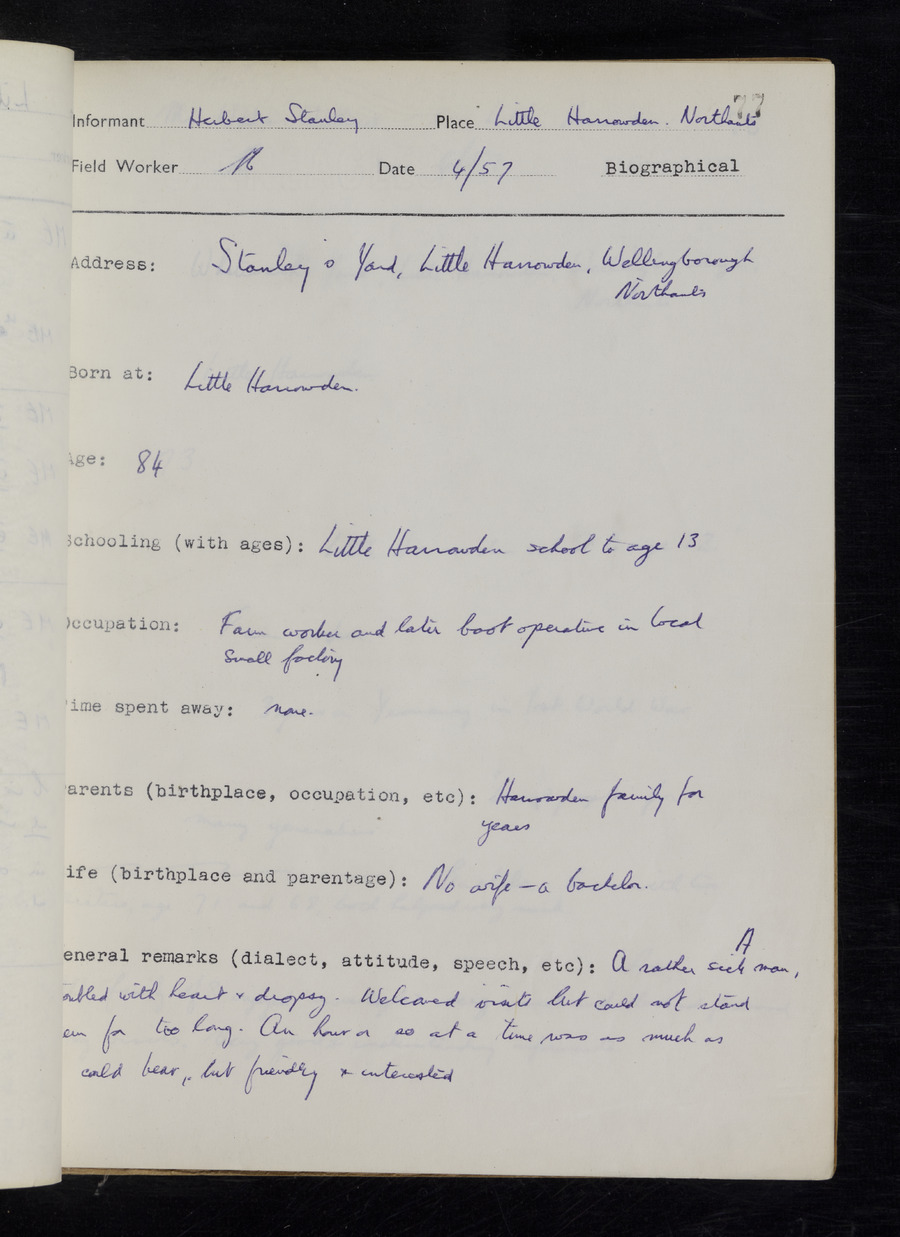 77
Informant Herbert Stanley Place Little Harrowden. Northants
Field Worker Date 4/57 Biographical
Address: Stanley's Yard, Little Harrowden, Wellingborough
Northants
Born at: Little Harrowden.
Age: 84
Schooling (with ages): Little Harrowden school to age 13
Occupation: Farm worker and later boot operative in local
small factory
ime spent away: none.
arents (birthplace, occupation, etc): Harrowden family for
years
ife (birthplace and parentage): No wife – a bachelor.
A
eneral remarks (dialect, attitude, speech, etc): A rather sick man,
oubled with heart & dropsy. Welcomed visits but could not stand
em for too long. An hour or so at a time was as much as
could bear, but friendly & interested